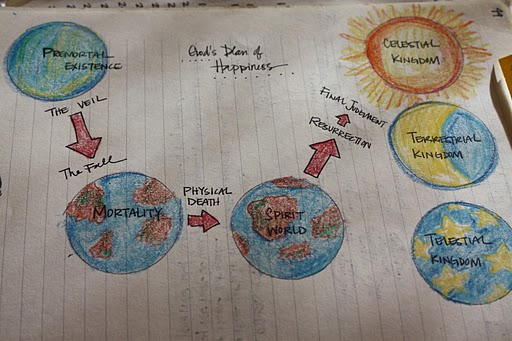 God's Plan of
Happiness
PREMORTAL
EXISTENCE
THE VEIL
The Fall
MORTALITY
PHYSICAL
DEATH
SPIRIT
WORLD
RESURRECTION
FINAL JUDGEMENT
CELESTIAL
KINGDOM
TERRESTRIAL
KINGDOM
TELESTIAL
KINGDOM